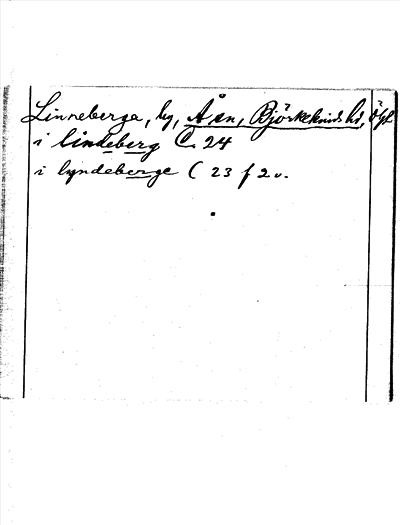 Linneberga, by, Å sn, Björkekinds hd, Ögl
i lindeberg C 24
i lyndeberge C 23 f 2 v.